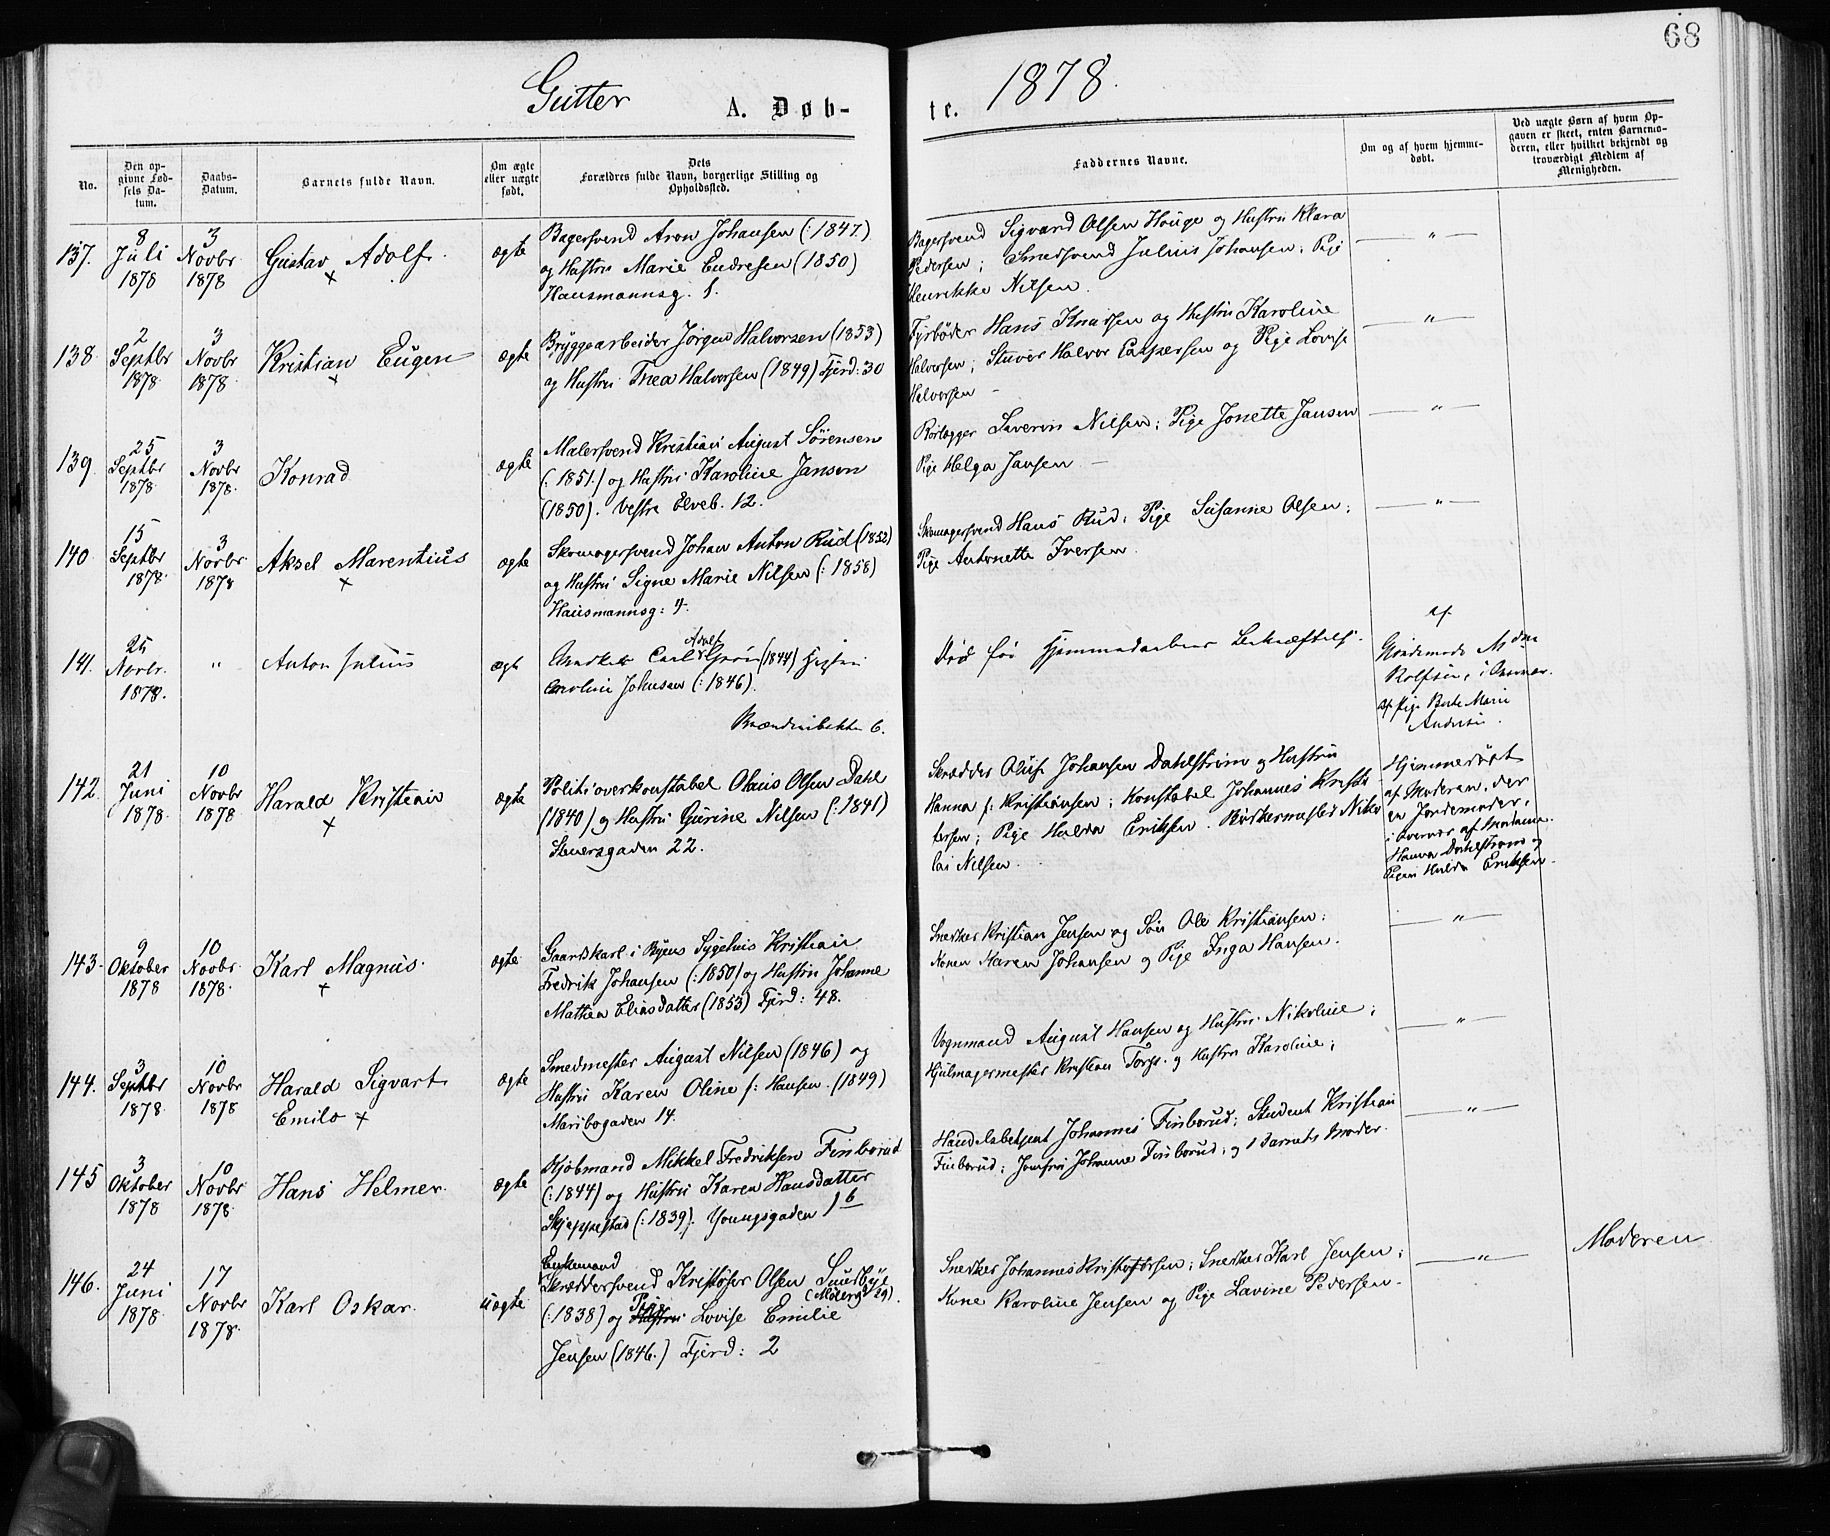 68
Gutter
A. Døb-
te.
1878.
No.
Den op-
givne Fød-
sels Da-
tum.
Daabs-
Datum.
Barnets fulde Navn.
Om ægte
eller uægte
født.
Dets
Forældres fulde Navn, borgerlige Stilling og
Opholdssted.
Faddernes Navne.
Om og af hvem hjemme-
døbt.
Ved uægte Børn af hvem Op-
gaven er skeet, enten Barnemo-
deren, eller hvilket bekjendt og
troværdigt Medlem af
Menigheden.
137.
8
Juli
1878
3
Novbr
1878
Gustav Adolf.
×
ægte
Bagersvend Aron Johansen (:1847.)
og Hustru Marie Endresen (1850)
Hausmannsg. 1.
Bagersvend Sigvard Olsen Houge og Hustru Klara
Pedersen; Smedsvend Julius Johansen; Pige
Henrikke Nilsen.
— " —
138.
2
Septbr
1878
3
Novbr
1878.
Kristian Eugen
×
ægte
Bryggearbeider Jörgen Halvorsen (1853)
og Hustru Thea Halvorsen (1849) Fjerd: 30
Fyrbøder Hans Knudsen og Hustru Karoline
Halvorsen; Stuver Halvor Caspersen og Pige Lovise
Halvorsen —
— " —
139.
25
Septbr
1878
3
Novbr
1878.
Konrad
ægte
Malersvend Kristian August Sörensen
(:1851.) og Hustru Karoline Jansen
(1850). Vestre Elveb. 12.
Rörlægger Severin Nilsen; Pige Jonette Jansen
Pige Helga Jansen —
— " —
140.
15
Septbr
1878.
3
Novbr
1878
Aksel Marentius
×
ægte
Skomagersvend Johan Anton Rud (1852)
og Hustru Signe Marie Nilsen (:1858)
Hausmannsg: 4.
Skomagersvend Hans Rud; Pige Susanne Olsen;
Pige Antonette Iversen.
— " —
141.
25
Novbr.
1878.
"
Anton Julius
ægt
Adolf
Snedker Carl Grön (1844)
Caroline Johnsen (:1846).
6.
Död för Hjemmedaabens Bekræftelse.
af
Rolfsen, i Overvær.
af Pige Berte Marie
Andersen.
142.
21
Juni
1878.
10
Novbr
1878
Harald Kristian
×
ægte
Politioverkonstabel Olaus Olsen Dahl
(1840) og Hustru Gurine Nilsen (:1841)
Stenersgaden 22.
Skrædder Oluf Johansen Dahlström og Hustru
Hanna f: Kristiansen; Konstabel Johannes Kristo
fersen; Pige Hulda Eriksen. Bödkermester Niko
lai Nilsen.
Hjemmedöbt
af Moderen, der
er Jordemoder,
i Overvær af Madame
Hanna Dahlström og
Pigen Hulda Eriksen.
143.
9
Oktober
1878
10
Novbr.
1878.
Karl Magnus.
×
ægte.
Gaardskarl i Byens Sygehus Kristian
Fredrik Johansen (:1850) og Hustru Johanne
Mathea Eliasdatter (1853) Fjerd: 48.
Snedker Kristian Jensen og Sön Ole Kristiansen:
Konen Maren Johansen og Pige Inga Hansen.
— " —
144.
3
Septbr
1878
10
Novbr
1878
Harald Sigvart
Emilo ×
ægte
Smedmester August Nilsen (1846) og
Hustru Karen Oline f: Hansen. (1849)
Maribogaden 14.
Vognmand August Hansen og Hustru Nikoline;
Hjulmagermester Kristian Torp. og Hustru Karoline;
— " —
145
3
Oktober
1878
10
Novbr
1878.
Hans Helmer.
ægte
Kjöbmand Mikkel Fredriksen Finborud
(:1844) og Hustru Karen Hansdatter
Skjeppestad (:1839). Youngsgaden 1 b
Handelsbetjent Johannes Finborud; Student Kristian
Finborud; Jomfru Johanne Finborud; og Barnets Moder.
— " —
146.
24
Juni
1878.
17
Novbr
1878.
Karl Oskar.
uægte
Enkemand
Skræddersvend Kristofer Olsen Sundbye
(Möllerg 29).
(:1838) og Pige Lovise Emilie
Jensen (1846.) Fjerd: 2
Snedker Johannes Kristofersen; Snedker Karl Jensen;
Kone Karoline Jensen og Pige Lavine Pedersen.
— " —
Moderen